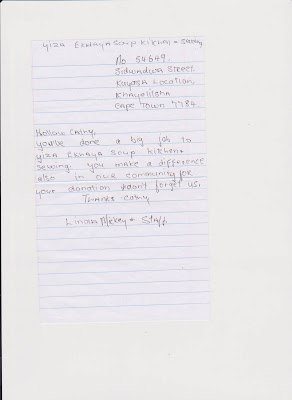 Yiza Ekhaya Soup Kitchen & Sewing
No 54649.
Street.
Kuyasa Location,
Khayelitsha
Cape Town 7784.
Hollow Cathy,
you've done a big job to
Yiza Ekhaya Soup Kitchen &
Sewing you make a difference
also in our community for
your donation don't forget us.
Thanks Cathy
Linous Mickey & Staff